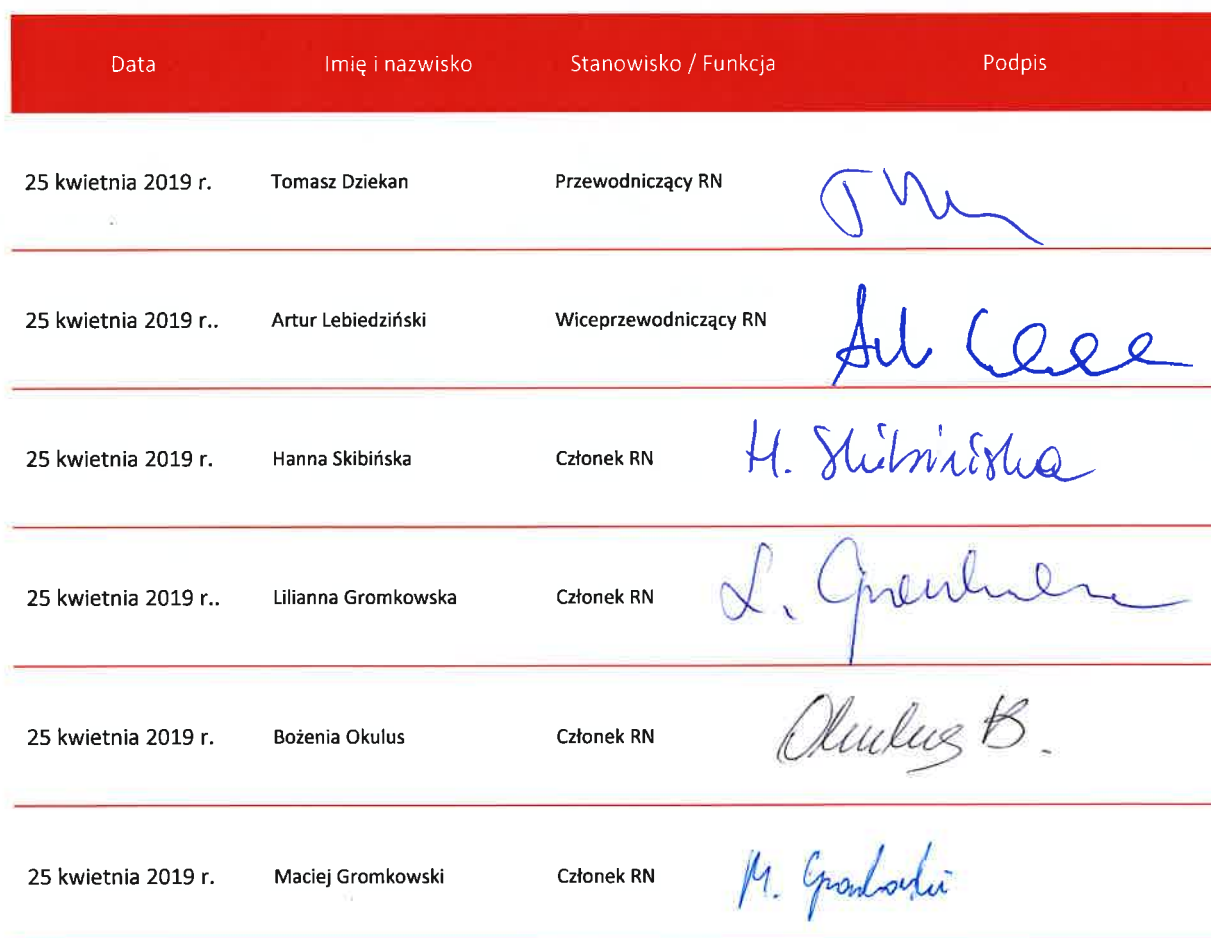 Data Imię i nazwisko Stanowisko / Funkcja Podpis
25 kwietnia 2019 r. Tomasz Dziekan Przewodniczący RN
25 kwietnia 2019 r.. Artur Lebiedziński Wiceprzewodniczący RN
25 kwietnia 2019 r. Hanna Skibińska Członek RN H. Skibińska
25 kwietnia 2019 r.. Lilianna Gromkowska Członek RN L.
25 kwietnia 2019 r. Bożenia Okulus Członek RN Okulus B.
25 kwietnia 2019 r. Maciej Gromkowski Członek RN M. Gromkowski